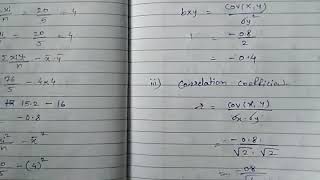 xi/n = 20/5 = 4
Σxiyi/n - x̄ȳ
76/5 - 4×4
15.2 - 16
- 0.8
yi²/n - x̄²
0/5 - (4)²
bxy = cov(x,y)/σy²
= -0.8/2
= -0.4
iii) Correlation coefficien
r = cov(x,y)/σx.σy
= -0.8/√2.√2
= -0.8